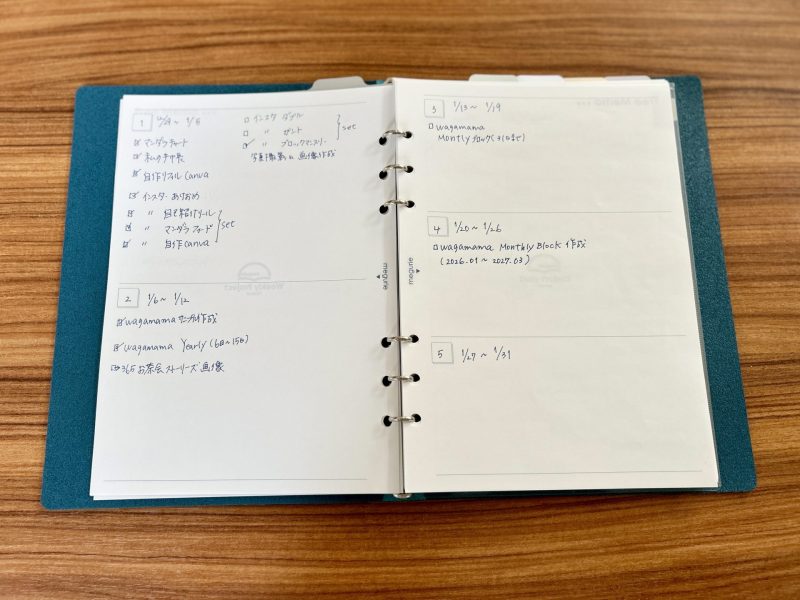 1 12/29 ~ 1/5
マンダラチャート
私の手帳
自作リフィル Canva
インスタ・あけおめ
〃 自己紹介リール
〃 マンダラ
〃 自作canva
set
インスタ
〃
〃 ブロックマンスリー
set
写真撮影&画像作成
2 1/6 ~ 1/12
wagamama サンプル作成
wagamama Yearly (6日~15日)
365お茶会ストーリーズ画像
megurie
megurie
3 1/13 ~ 1/19
wagamama
Montly ブロック(31日まで)
4 1/20 ~ 1/26
wagamama Monthly Block 作成
(2026.01 ~ 2027.03)
5 1/27 ~ 1/31